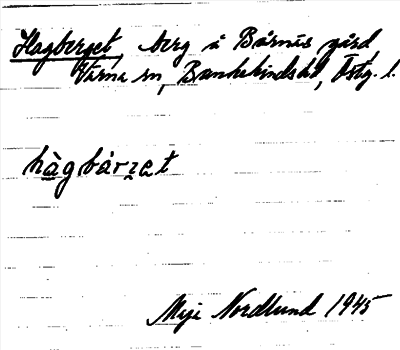 Hagberget, berg å Bårnis gård,
Värna sn, Bankekinds hd, Östg. l.
hàgbàrzet
Miji Nordlund 1945